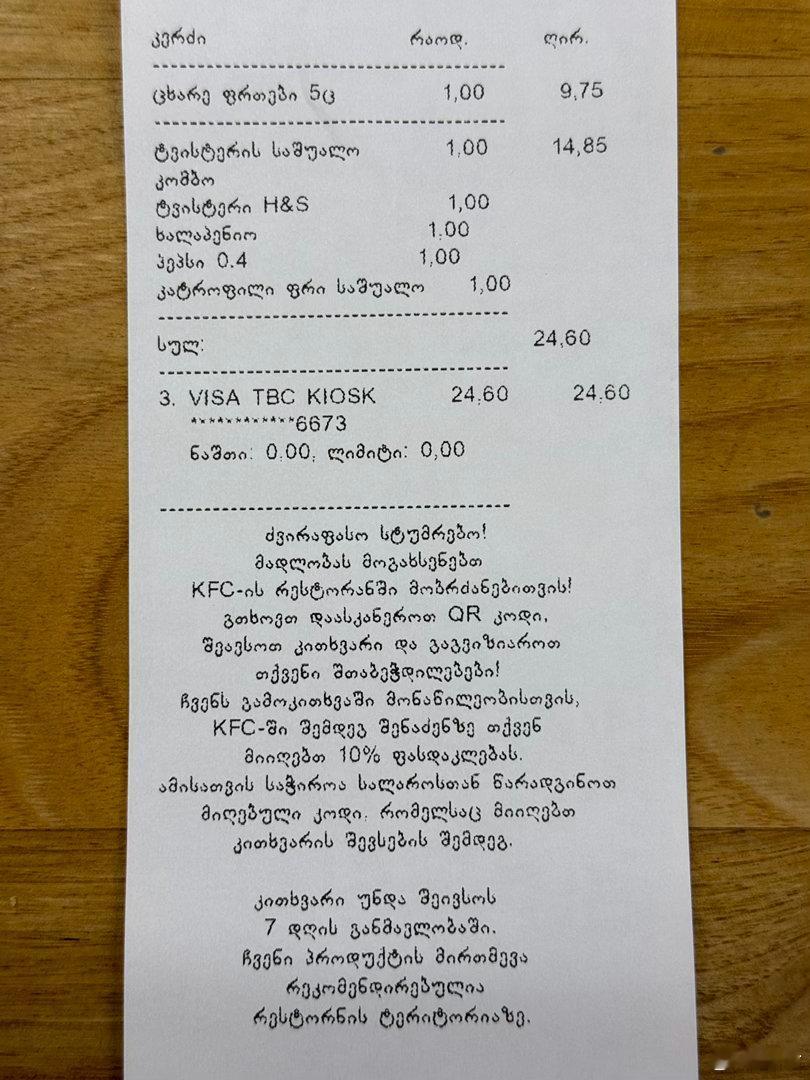 კერძი რაოდ. ღირ.
ცხარე ფრთები 5ც 1,00 9,75
ტვისტერის საშუალო 1,00 14,85
კომბო
ტვისტერი H&S 1,00
ხალაპენიო 1,00
პეპსი 0.4 1,00
კატროფილი ფრი საშუალო 1,00
სულ: 24,60
3. VISA TBC KIOSK 24,60 24,60
************6673
ნაშთი: 0,00, ლიმიტი: 0,00
ძვირაფასო სტუმრებო!
მადლობას მოგახსენებთ
KFC-ის რესტორანში მობრძანებითვის!
გთხოვთ დაასკანეროთ QR კოდი,
შეავსოთ კითხვარი და გაგვიზიაროთ
თქვენი შთაბეჭდილებები!
ჩვენს გამოკითხვაში მონაწილეობისთვის,
KFC-ში შემდეგ შენაძენზე თქვენ
მიიღებთ 10% ფასდაკლებას.
ამისათვის საჭიროა სალაროსთან წარადგინოთ
მიღებული კოდი, რომელსაც მიიღებთ
კითხვარის შევსების შემდეგ.
კითხვარი უნდა შეივსოს
7 დღის განმავლობაში.
ჩვენი პროდუქტის მირთმევა
რეკომენდირებულია
რესტორნის ტერიტორიაზე.